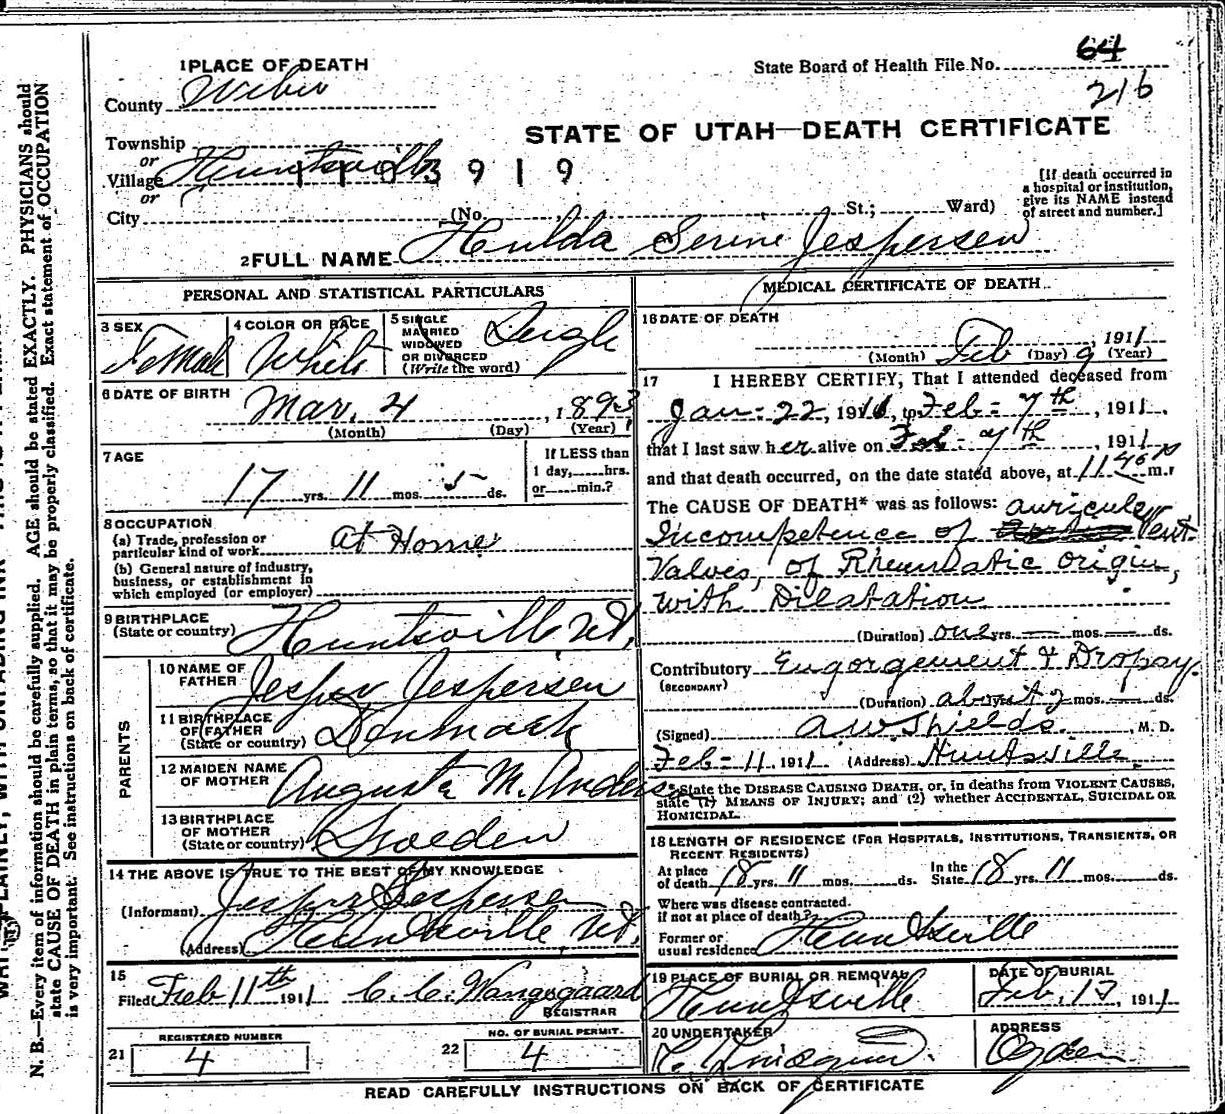 1 PLACE OF DEATH
County Weber
State Board of Health File No. 64
216
STATE OF UTAH—DEATH CERTIFICATE
Township
or
Village Huntsville
1 1 0 3 9 1 9
or
City (No. St.; Ward)
[If death occurred in a hospital or institution, give its NAME instead of street and number.]
2 FULL NAME Hulda Serine Jespersen
PERSONAL AND STATISTICAL PARTICULARS
3 SEX Female
4 COLOR OR RACE White
5 SINGLE MARRIED WIDOWED OR DIVORCED (Write the word) Single
6 DATE OF BIRTH Mar. 4, 1893
(Month) (Day) (Year)
7 AGE
17 yrs. 11 mos. 5 ds.
If LESS than 1 day, hrs. or min.?
8 OCCUPATION
(a) Trade, profession or particular kind of work At Home
(b) General nature of industry, business, or establishment in which employed (or employer)
9 BIRTHPLACE (State or country) Huntsville Ut.
PARENTS
10 NAME OF FATHER Jesper Jespersen
11 BIRTHPLACE OF FATHER (State or country) Denmark
12 MAIDEN NAME OF MOTHER Augusta M. Anderson
13 BIRTHPLACE OF MOTHER (State or country) Sweden
14 THE ABOVE IS TRUE TO THE BEST OF MY KNOWLEDGE
(Informant) Jesper Jespersen
(Address) Huntsville, Ut.
15
Filed Feb 11th 1911 C. C. Wangsgaard
REGISTRAR
21 REGISTERED NUMBER 4
22 NO. OF BURIAL PERMIT. 4
MEDICAL CERTIFICATE OF DEATH
16 DATE OF DEATH
Feb 9, 1911
(Month) (Day) (Year)
17 I HEREBY CERTIFY, That I attended deceased from
Jan - 22, 1911, to Feb - 7th, 1911.
that I last saw her alive on Feb - 7th, 1911
and that death occurred, on the date stated above, at 11 40 P m.
The CAUSE OF DEATH* was as follows: auriculo
Incompetence of Vent.
Valves, of Rheumatic origin,
with Dilatation
(Duration) one yrs. — mos. — ds.
Contributory Engorgement & Dropsy.
(SECONDARY)
(Duration) about 2 mos. ds.
(Signed) A W Shields, M. D.
Feb - 11 1911 (Address) Huntsville.
* State the DISEASE CAUSING DEATH, or, in deaths from VIOLENT CAUSES, state (1) MEANS OF INJURY; and (2) whether ACCIDENTAL, SUICIDAL OR HOMICIDAL.
18 LENGTH OF RESIDENCE (FOR HOSPITALS, INSTITUTIONS, TRANSIENTS, OR RECENT RESIDENTS)
At place of death 18 yrs. 11 mos. ds. In the State 18 yrs. 11 mos. ds.
Where was disease contracted, if not at place of death?
Former or usual residence Huntsville
19 PLACE OF BURIAL OR REMOVAL Huntsville
DATE OF BURIAL Feb. 12, 1911
20 UNDERTAKER
ADDRESS Ogden
READ CAREFULLY INSTRUCTIONS ON BACK OF CERTIFICATE
N. B.—Every item of information should be carefully supplied. AGE should be stated EXACTLY. PHYSICIANS should
state CAUSE OF DEATH in plain terms, so that it may be properly classified. Exact statement of OCCUPATION
is very important. See instructions on back of certificate.